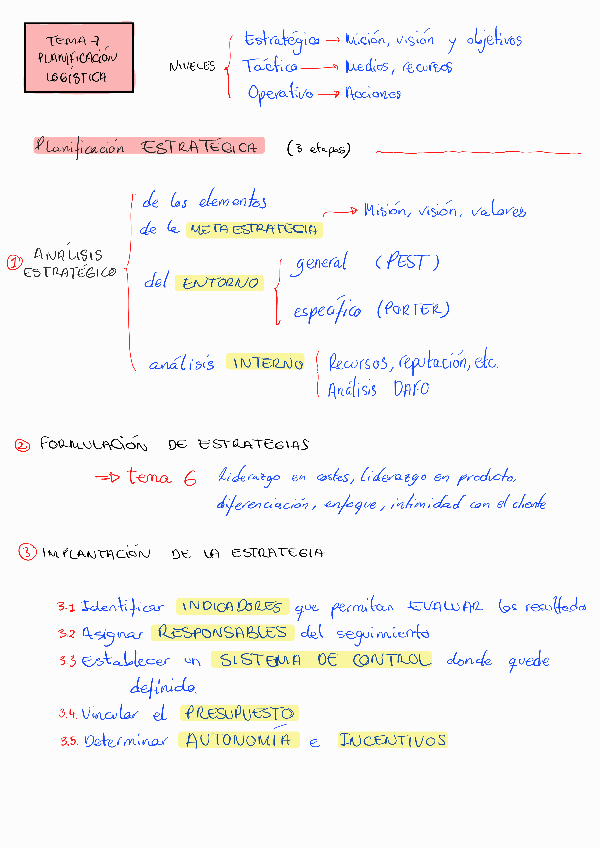 TEMA 7
PLANIFICACIÓN
LOGÍSTICA
NIVELES
Estratégico → Misión, visión y objetivos
Táctico → Medios, recursos
Operativo → Acciones
Planificación ESTRATÉGICA (3 etapas)
① ANÁLISIS
ESTRATÉGICO
de los elementos
de la METAESTRATEGIA → Misión, visión, valores
del ENTORNO
general (PEST)
específico (PORTER)
análisis INTERNO
Recursos, reputación, etc.
Análisis DAFO
② FORMULACIÓN DE ESTRATEGIAS
⇒ tema 6 Liderazgo en costes, Liderazgo en producto,
diferenciación, enfoque, intimidad con el cliente
③ IMPLANTACIÓN DE LA ESTRATEGIA
3.1 Identificar INDICADORES que permitan EVALUAR los resultados
3.2 Asignar RESPONSABLES del seguimiento
3.3 Establecer un SISTEMA DE CONTROL donde quede
definido.
3.4. Vincular el PRESUPUESTO
3.5. Determinar AUTONOMÍA e INCENTIVOS